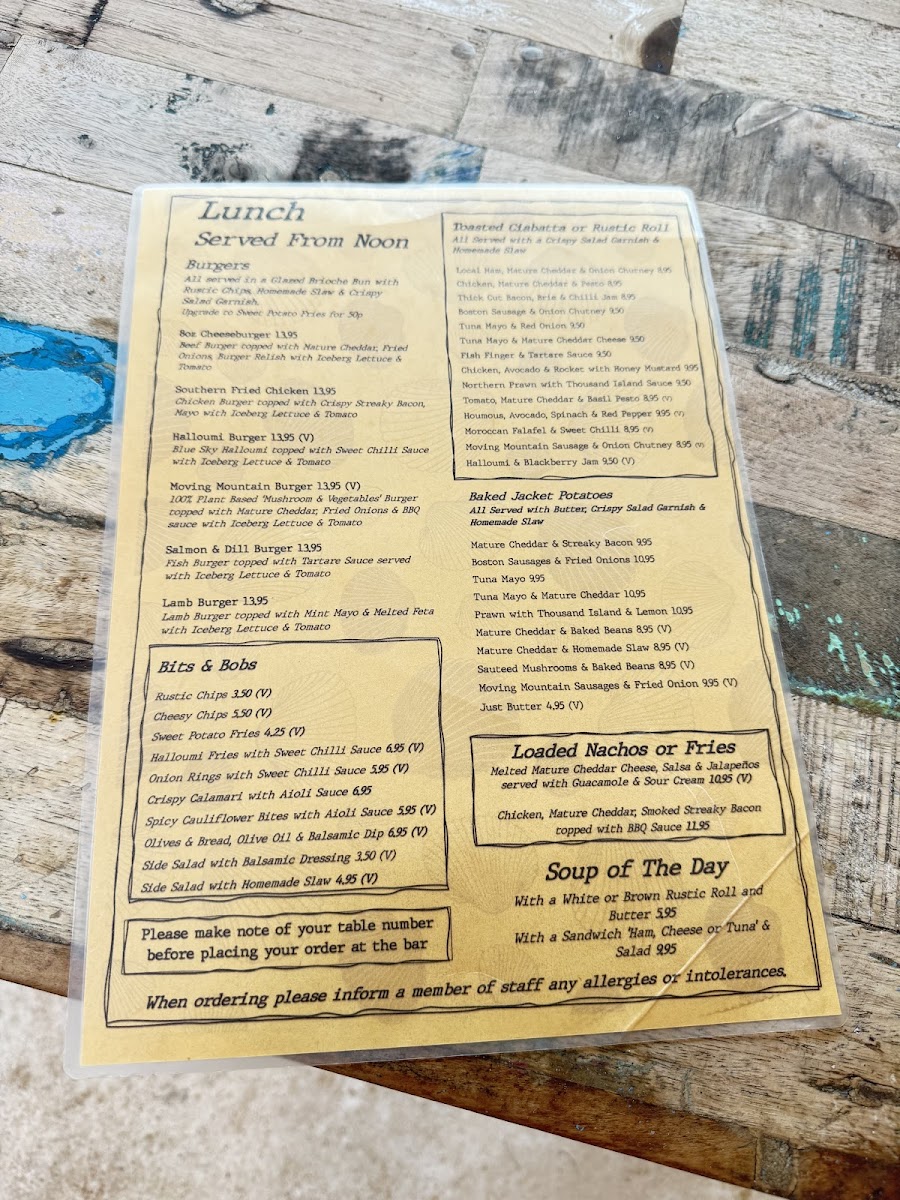 Lunch
Served From Noon
Burgers
All served in a Glazed Brioche Bun with
Rustic Chips, Homemade Slaw & Crispy
Salad Garnish.
Upgrade to Sweet Potato Fries for 50p
8oz Cheeseburger 13.95
Beef Burger topped with Mature Cheddar, Fried
Onions, Burger Relish with Iceberg Lettuce &
Tomato
Southern Fried Chicken 13.95
Chicken Burger topped with Crispy Streaky Bacon,
Mayo with Iceberg Lettuce & Tomato
Halloumi Burger 13.95 (V)
Blue Sky Halloumi topped with Sweet Chilli Sauce
with Iceberg Lettuce & Tomato
Moving Mountain Burger 13.95 (V)
100% Plant Based 'Mushroom & Vegetables' Burger
topped with Mature Cheddar, Fried Onions & BBQ
sauce with Iceberg Lettuce & Tomato
Salmon & Dill Burger 13.95
Fish Burger topped with Tartare Sauce served
with Iceberg Lettuce & Tomato
Lamb Burger 13.95
Lamb Burger topped with Mint Mayo & Melted Feta
with Iceberg Lettuce & Tomato
Bits & Bobs
Rustic Chips 3.50 (V)
Cheesy Chips 5.50 (V)
Sweet Potato Fries 4.25 (V)
Halloumi Fries with Sweet Chilli Sauce 6.95 (V)
Onion Rings with Sweet Chilli Sauce 5.95 (V)
Crispy Calamari with Aioli Sauce 6.95
Spicy Cauliflower Bites with Aioli Sauce 5.95 (V)
Olives & Bread, Olive Oil & Balsamic Dip 6.95 (V)
Side Salad with Balsamic Dressing 3.50 (V)
Side Salad with Homemade Slaw 4.95 (V)
Please make note of your table number
before placing your order at the bar
Toasted Ciabatta or Rustic Roll
All Served with a Crispy Salad Garnish &
Homemade Slaw
Local Ham, Mature Cheddar & Onion Chutney 8.95
Chicken, Mature Cheddar & Pesto 8.95
Thick Cut Bacon, Brie & Chilli Jam 8.95
Boston Sausage & Onion Chutney 9.50
Tuna Mayo & Red Onion 9.50
Tuna Mayo & Mature Cheddar Cheese 9.50
Fish Finger & Tartare Sauce 9.50
Chicken, Avocado & Rocket with Honey Mustard 9.95
Northern Prawn with Thousand Island Sauce 9.50
Tomato, Mature Cheddar & Basil Pesto 8.95 (V)
Houmous, Avocado, Spinach & Red Pepper 9.95 (V)
Moroccan Falafel & Sweet Chilli 8.95 (V)
Moving Mountain Sausage & Onion Chutney 8.95 (V)
Halloumi & Blackberry Jam 9.50 (V)
Baked Jacket Potatoes
All Served with Butter, Crispy Salad Garnish &
Homemade Slaw
Mature Cheddar & Streaky Bacon 9.95
Boston Sausages & Fried Onions 10.95
Tuna Mayo 9.95
Tuna Mayo & Mature Cheddar 10.95
Prawn with Thousand Island & Lemon 10.95
Mature Cheddar & Baked Beans 8.95 (V)
Mature Cheddar & Homemade Slaw 8.95 (V)
Sauteed Mushrooms & Baked Beans 8.95 (V)
Moving Mountain Sausages & Fried Onion 9.95 (V)
Just Butter 4.95 (V)
Loaded Nachos or Fries
Melted Mature Cheddar Cheese, Salsa & Jalapeños
served with Guacamole & Sour Cream 10.95 (V)
Chicken, Mature Cheddar, Smoked Streaky Bacon
topped with BBQ Sauce 11.95
Soup of The Day
With a White or Brown Rustic Roll and
Butter 5.95
With a Sandwich 'Ham, Cheese or Tuna' &
Salad 9.95
When ordering please inform a member of staff any allergies or intolerances.